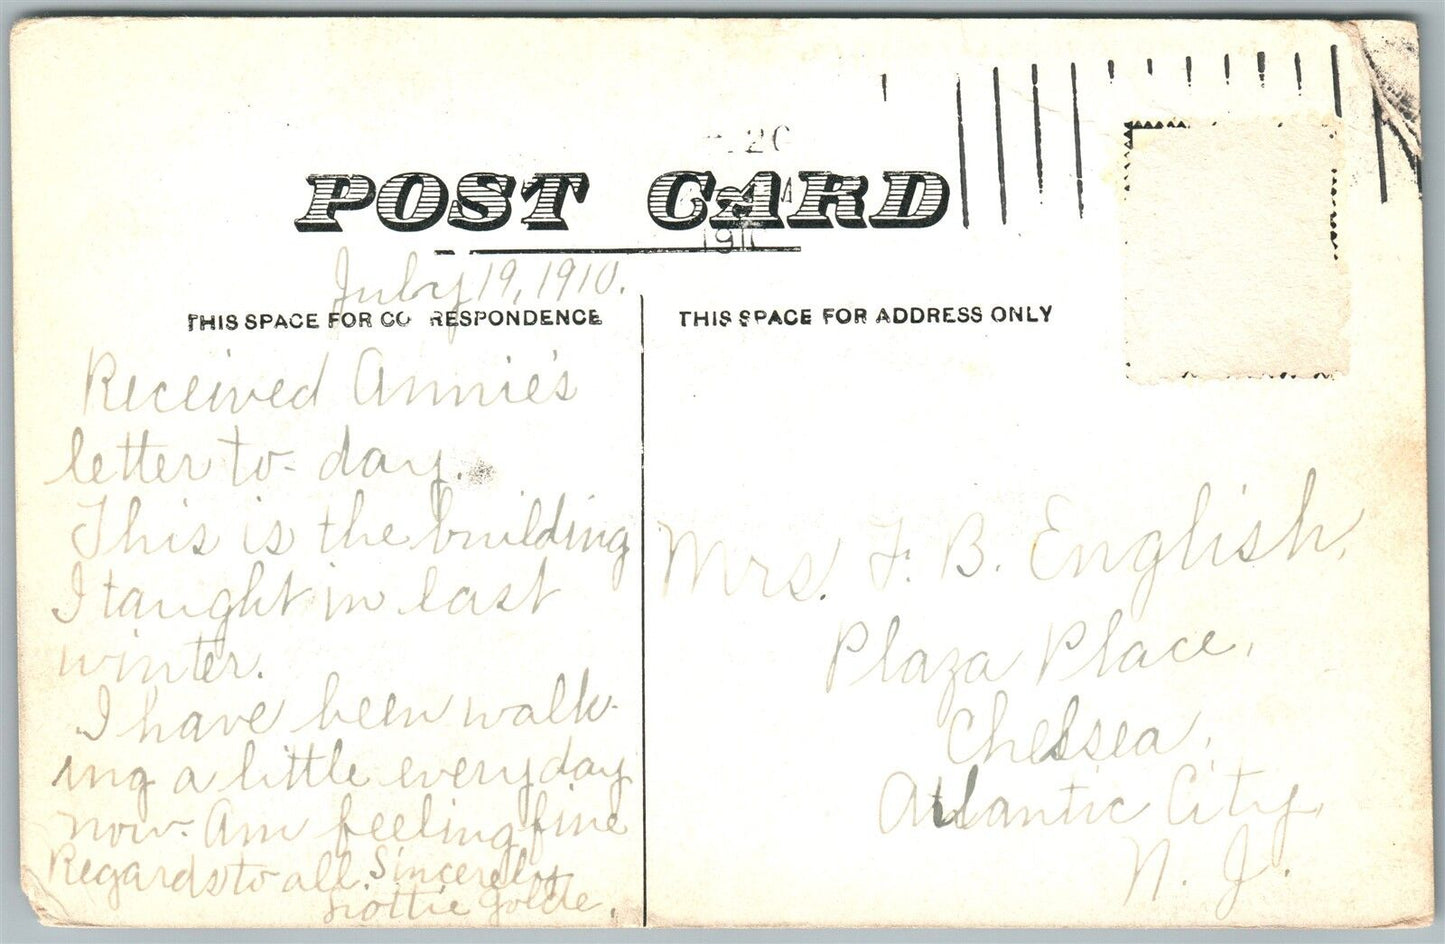 20
POST CARD
191
July 19, 1910.
THIS SPACE FOR CO RESPONDENCE
THIS SPACE FOR ADDRESS ONLY
Received Annie's
letter to-day.
This is the building
I taught in last
winter.
I have been walk-
ing a little everyday
now. Am feeling fine
Regards to all. Sincerely
Lottie
Mrs. F. B. English,
Plaza Place,
Chelsea,
Atlantic City,
N. J.